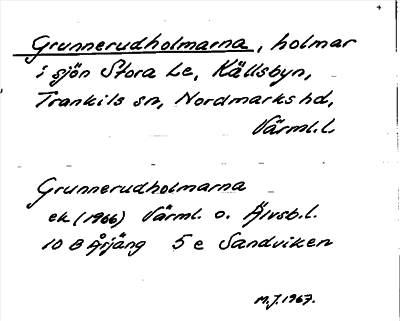 Grunnerudholmarna, holmar
i sjön Stora Le, Källsbyn,
Trankils sn, Nordmarks hd,
Värml.l.
Grunnerudholmarna
ek (1966) Värml. o. Älvsb.l.
10 B Årjäng 5 e Sandviken
M.J. 1967.